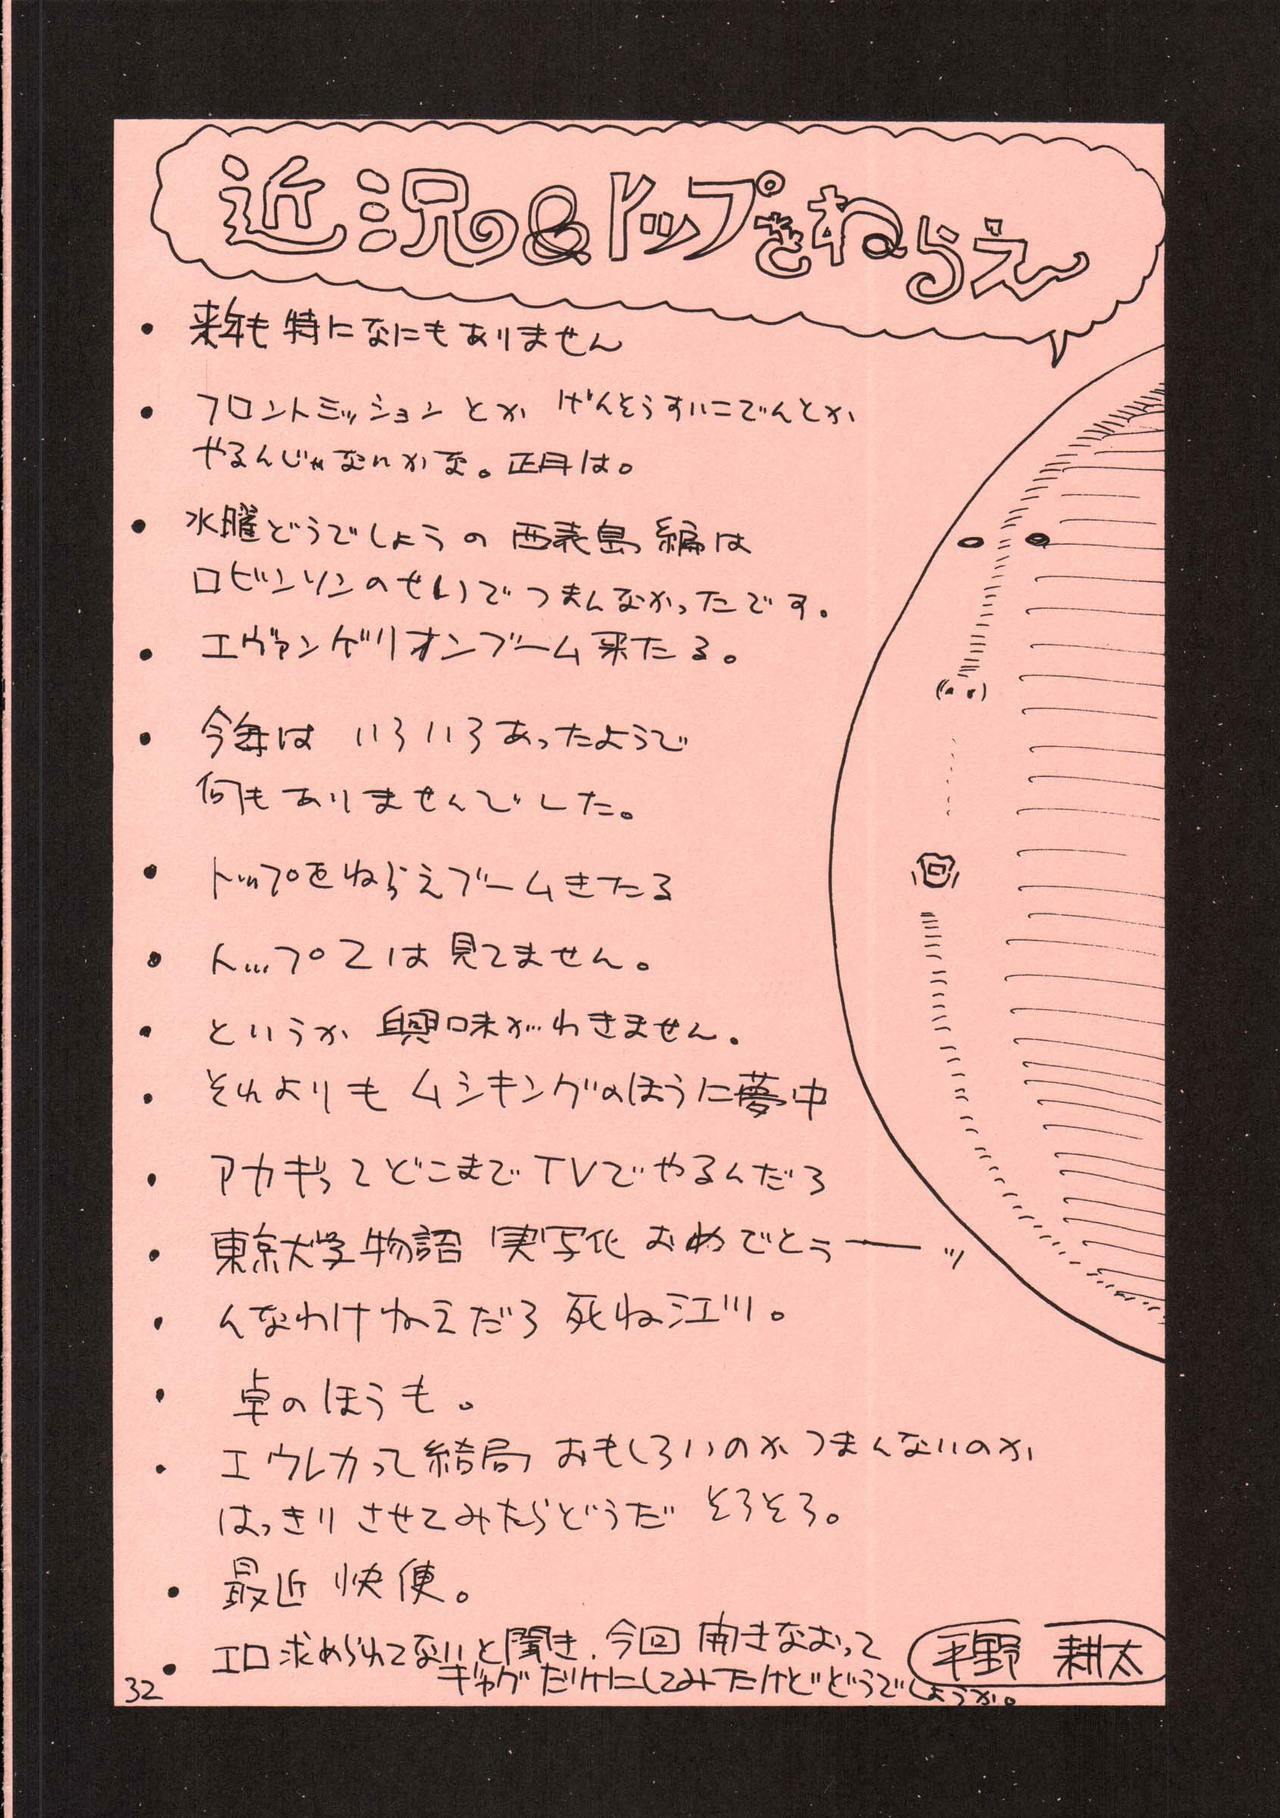 近況の&トップをねらえ
・来年も特になにもありません
・フロントミッションとか げんそうすいこでんとか
やるんじゃないかな。正月は。
・水曜どうでしょうの西表島編は
ロビンソンのせいでつまんなかったです。
・エヴァンゲリオンブーム来たる。
・今年はいろいろあったようで
何もありませんでした。
・トップをねらえブームきたる
・トップ2は見てません。
・というか興味がわきません。
・それよりもムシキングのほうに夢中
・アカギってどこまでTVでやるんだろ
・東京大学物語 実写化 おめでとぅーーッ
・んなわけねえだろ死ね江川。
・卓のほうも。
・エウレカって結局 おもしろいのかつまんないのか
はっきりさせてみたらどうだ そろそろ。
・最近快便。
・エロ求められてないと聞き、今回 開きなおって
ギャグだけにしてみたけどどうでしょうか。
平野 耕太
32